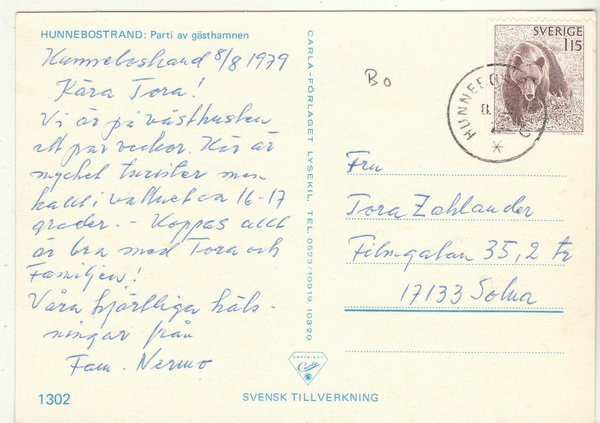 HUNNEBOSTRAND: Parti av gästhamnen
Hunnebostrand 8/8 1979
Kära Tora!
Vi är på västkusten
ett par veckor. Här är
mycket turister men
kallt i vattnet ca 16-17
grader. - Hoppas allt
är bra med Tora och
Familjen!
Våra hjärtliga häls-
ningar från
Fam. Nermo
1302
CARLA-FÖRLAGET LYSEKIL TEL. 0523/10919, 10320
COPYRIGHT
Carla
SVENSK TILLVERKNING
Bo
SVERIGE
115
HUNNEBO
8.
Fru
Tora Zahlander
Filmgatan 35, 2 tr
17133 Solna